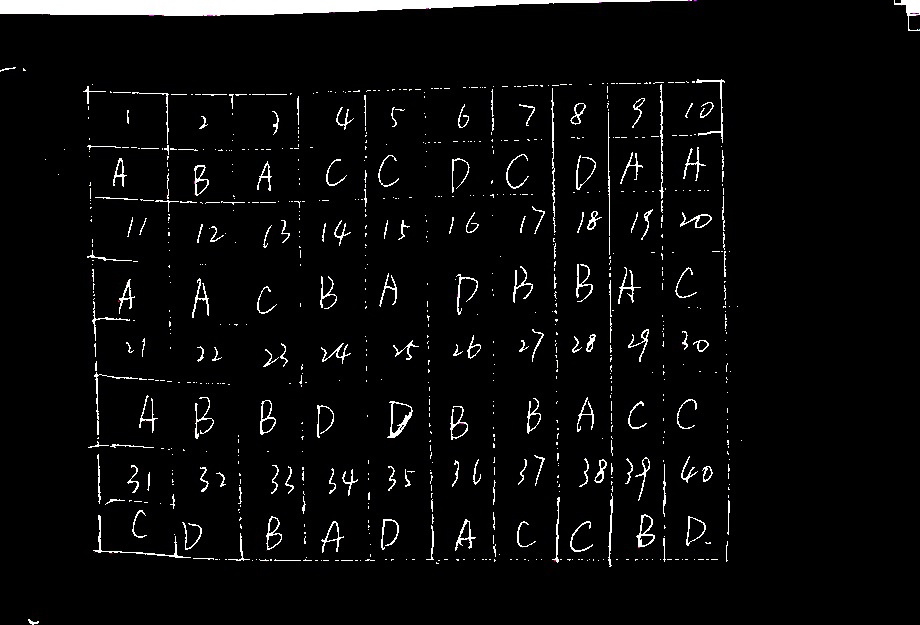 1 2 3 4 5 6 7 8 9 10
A B A C C D C D A A
11 12 13 14 15 16 17 18 19 20
A A C B A D B B A C
21 22 23 24 25 26 27 28 29 30
A B B D D B B A C C
31 32 33 34 35 36 37 38 39 40
C D B A D A C C B D.